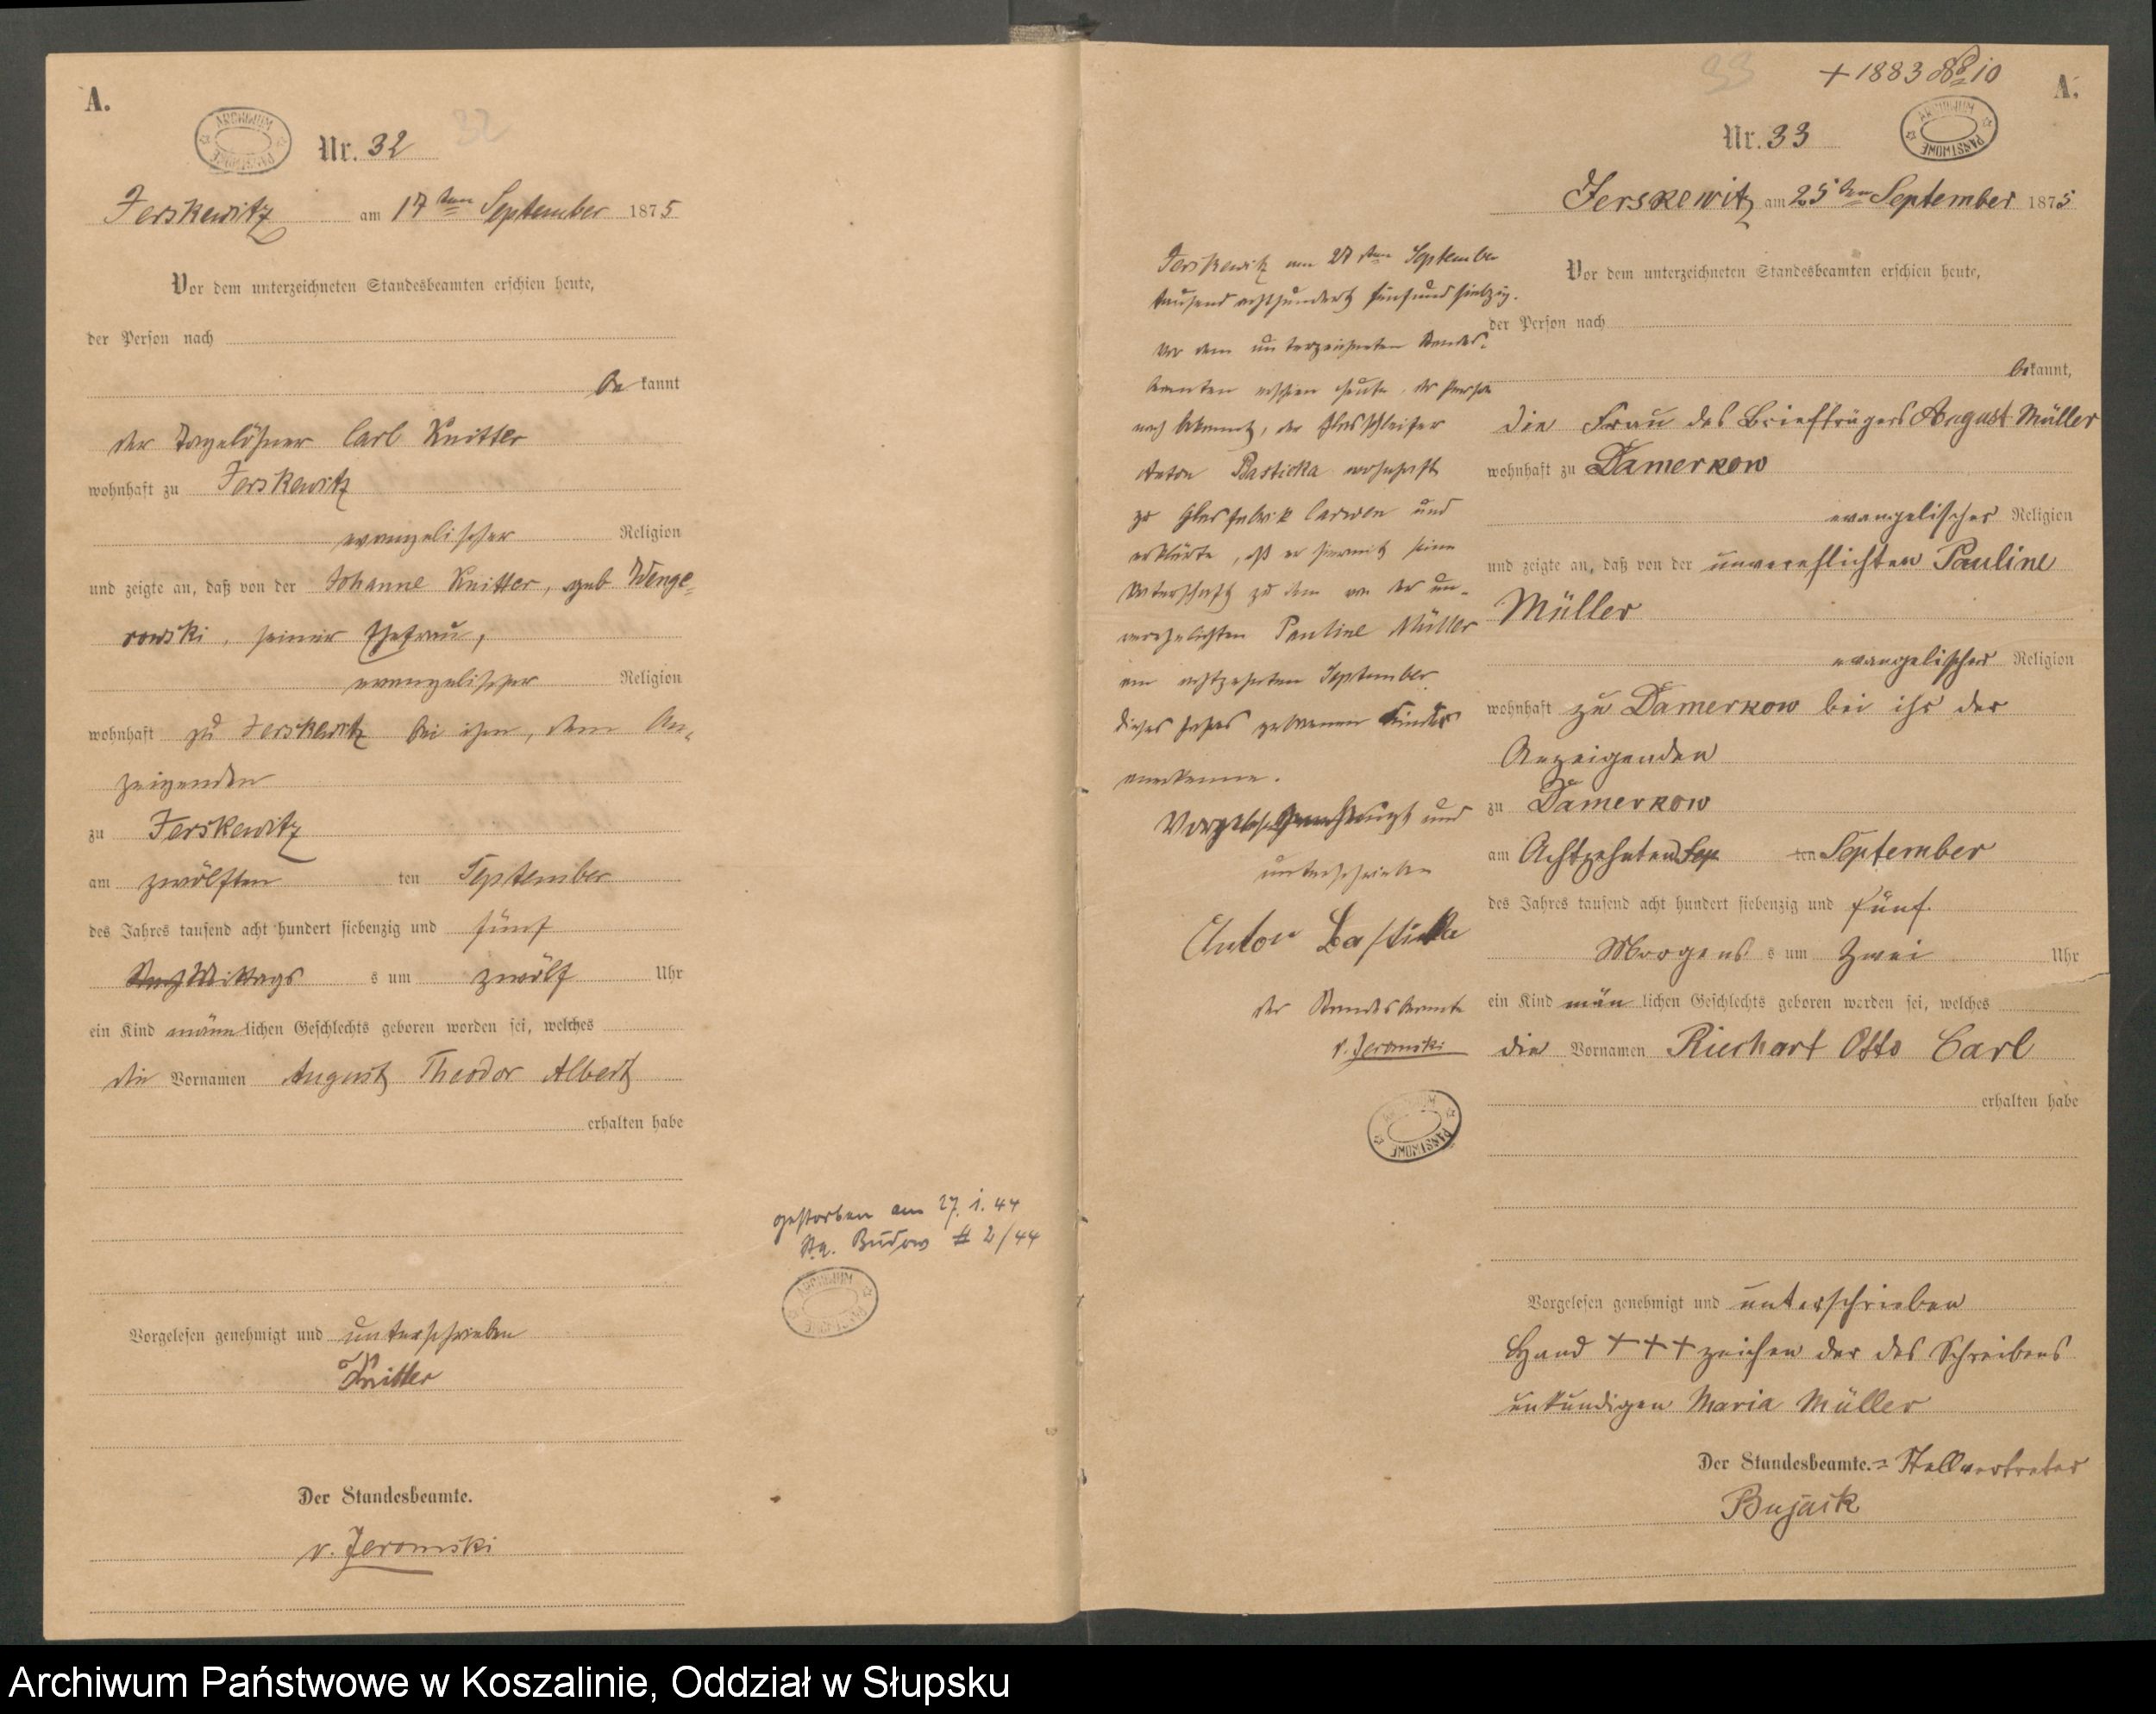 A.
ARCHIWUM PAŃSTWOWE
32
Nr. 32
Jerskewitz am 17ten September 1875
Vor dem unterzeichneten Standesbeamten erschien heute,
der Person nach
be kannt
der Tagelöhner Carl Knitter
wohnhaft zu Jerskewitz
evangelischer Religion
und zeigte an, daß von der Johanne Knitter, geb Wenge-
rowski, seiner Ehefrau,
evangelischer Religion
wohnhaft zu Jerskewitz bei ihm, dem An-
zeigenden
zu Jerskewitz
am zwölften ten September
des Jahres tausend acht hundert siebenzig und fünf
Mittags s um zwölf Uhr
ein Kind männ lichen Geschlechts geboren worden sei, welches
die Vornamen August Theodor Albert
erhalten habe
Vorgelesen genehmigt und unterschrieben
Knitter
Der Standesbeamte.
v. Jeromski
gestorben am 27.1.44
Sta. Budow # 2/44
ARCHIWUM PAŃSTWOWE
33
+ 1883 No 10
A.
Nr. 33
ARCHIWUM PAŃSTWOWE
Jerskewitz am 25ten September 1875
Vor dem unterzeichneten Standesbeamten erschien heute,
der Person nach
bekannt,
die Frau des Briefträgers August Müller
wohnhaft zu Damerkow
evangelischer Religion
und zeigte an, daß von der unverehlichten Pauline
Müller
evangelischer Religion
wohnhaft zu Damerkow bei ihr der
Anzeigenden
zu Damerkow
am Achtzehnten Sep ten September
des Jahres tausend acht hundert siebenzig und fünf.
Morgens s um Zwei Uhr
ein Kind män lichen Geschlechts geboren worden sei, welches
die Vornamen Riechart Otto Carl
erhalten habe
Vorgelesen genehmigt und unterschrieben
Hand +++ zeichen der des Schreibens
unkundigen Maria Müller
Der Standesbeamte.= Stellvertreter
Bujack
Jerskewitz am 27ten September
tausend achthundert fünfundsiebzig.
Vor dem unterzeichneten Standes-
beamten erschien heute, der Person
nach bekannt, der Glasschleifer
Anton Basticka wohnhaft
zu Glasfabrik Carwen und
erklärte, daß er hiermit seine
Vaterschaft zu dem von der un-
verehelichten Pauline Müller
am achtzehnten September
dieses Jahres geborenen Kindes
anerkenne.
Vorgelesen genehmigt und
unterschrieben
Anton Basticka
der Standesbeamte
v. Jeromski
ARCHIWUM PAŃSTWOWE
Archiwum Państwowe w Koszalinie, Oddział w Słupsku